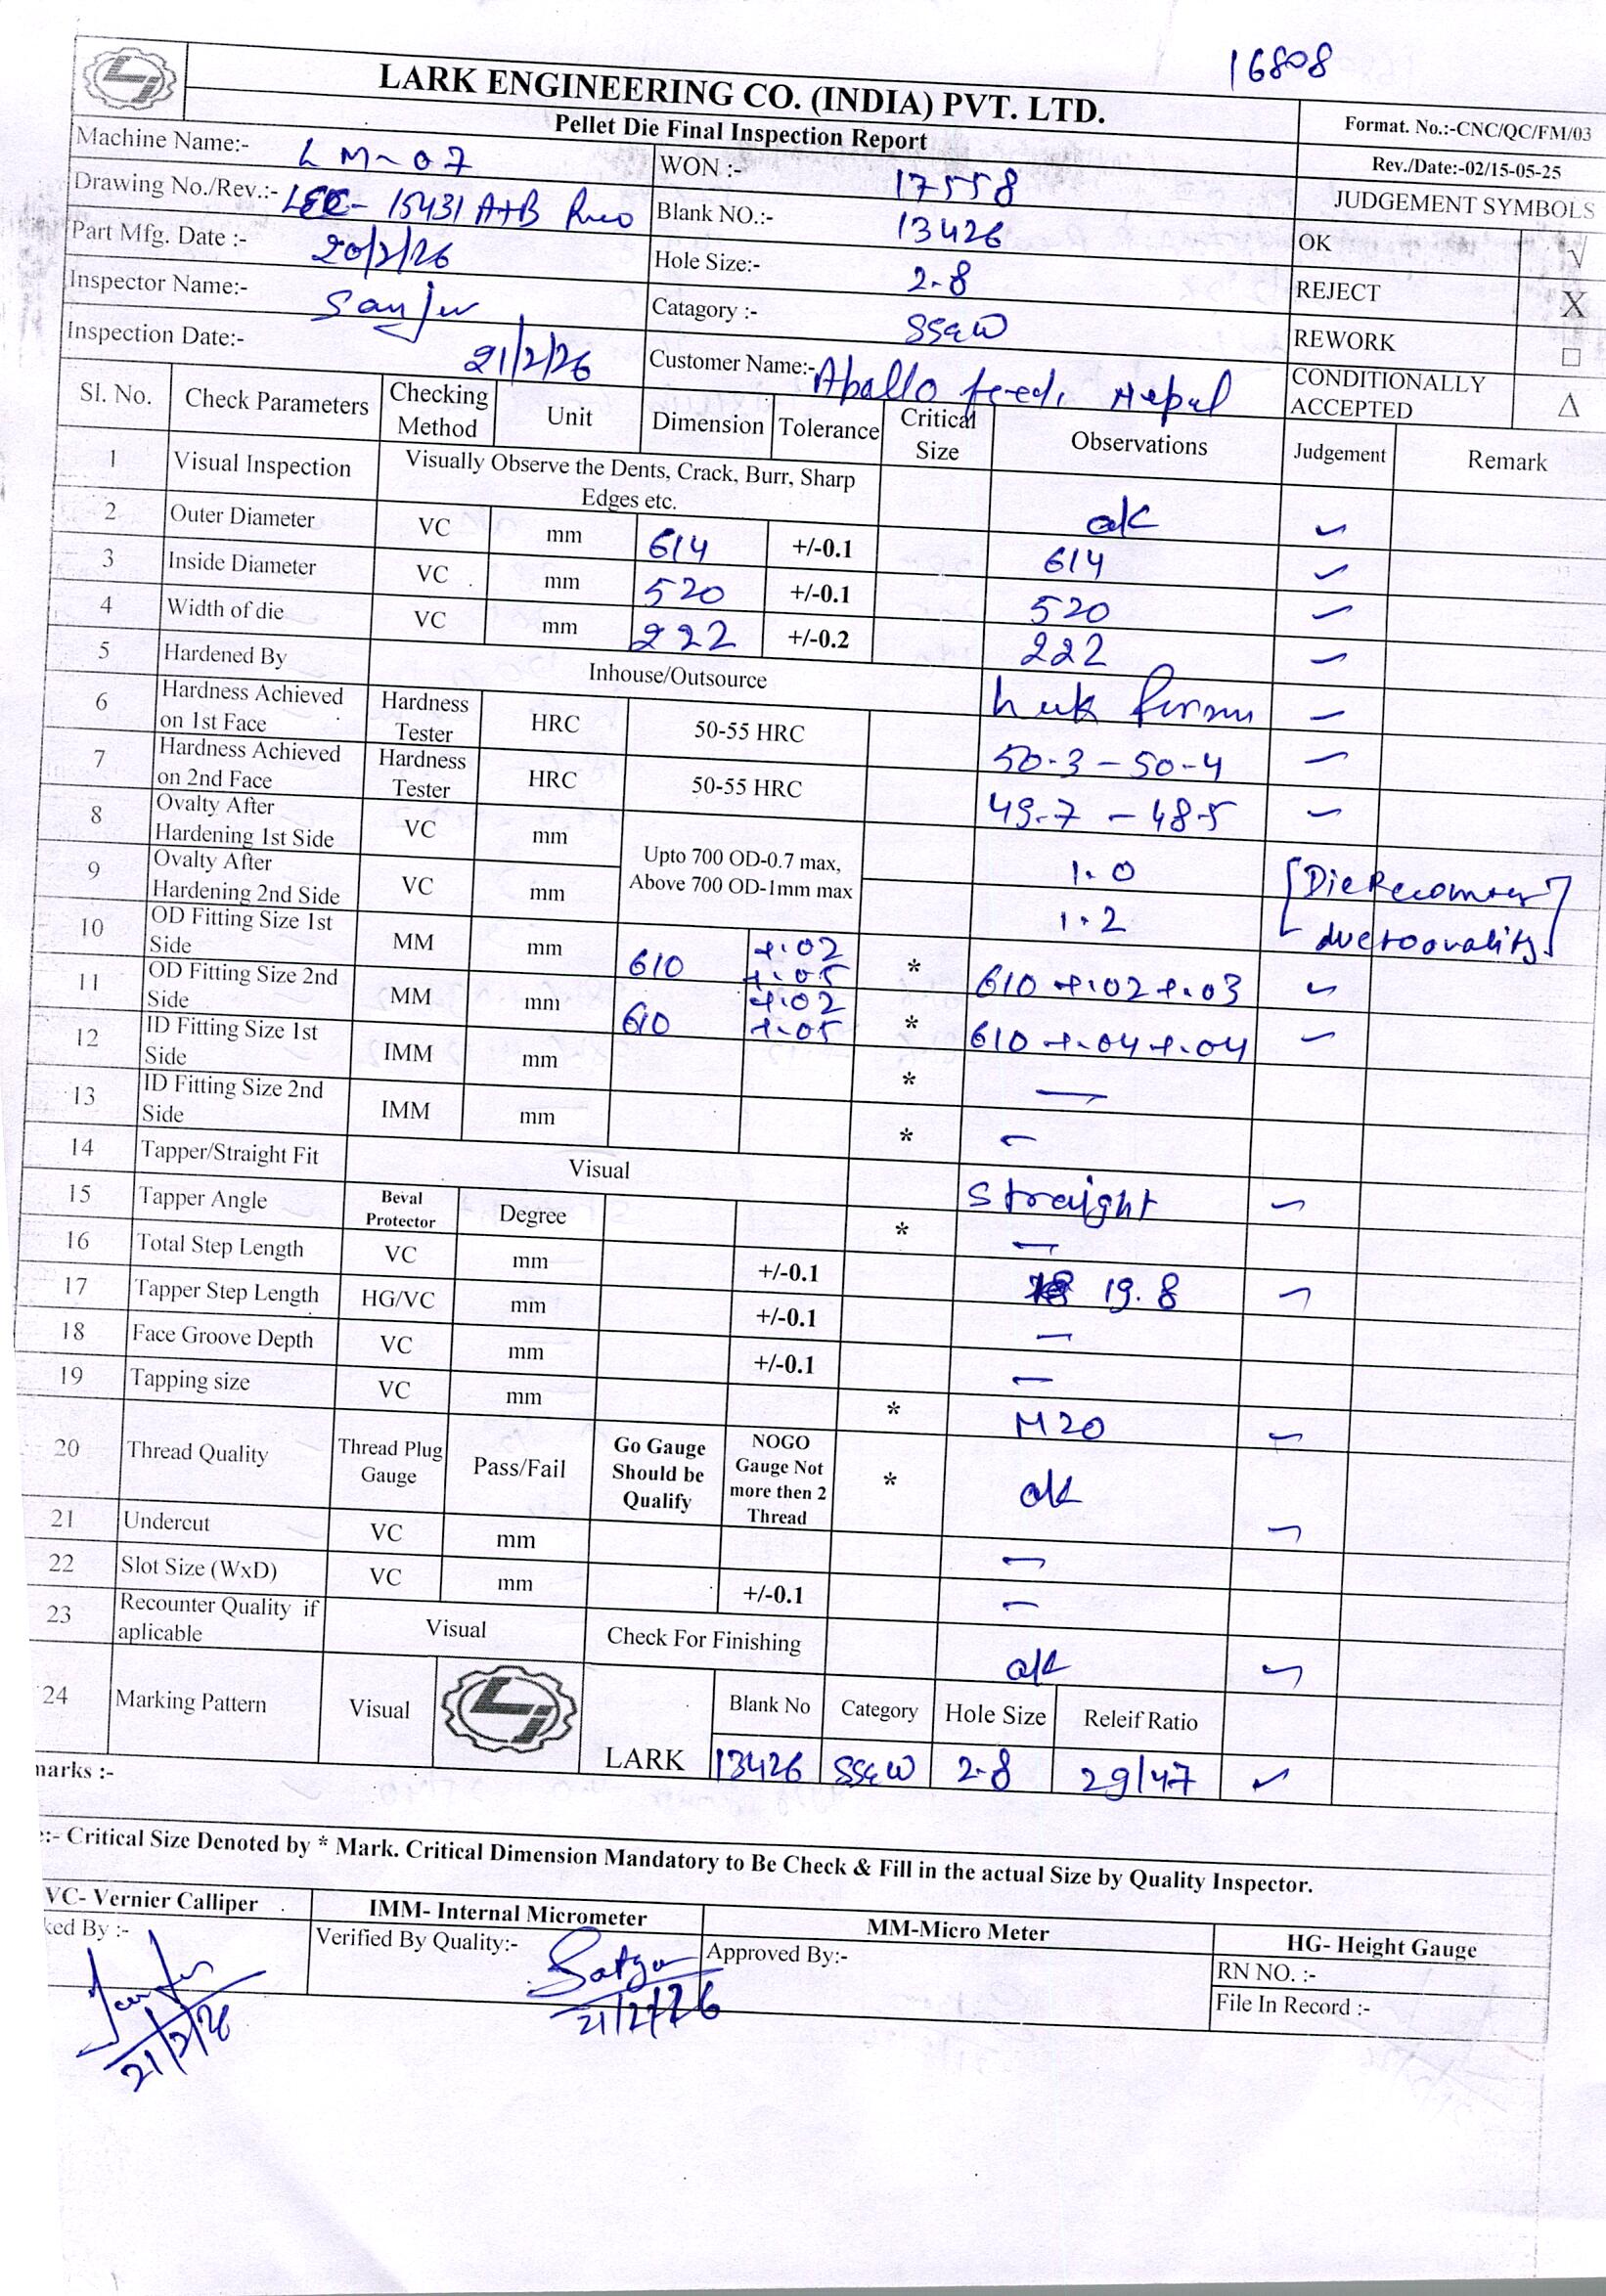 16808
LARK ENGINEERING CO. (INDIA) PVT. LTD.
Pellet Die Final Inspection Report
Format. No.:-CNC/QC/FM/03
Rev./Date:-02/15-05-25
JUDGEMENT SYMBOLS
Machine Name:- LM-07
WON :- 17558
Drawing No./Rev.:- LEC-15431 A+B
Blank NO.:- 13426
OK √
Part Mfg. Date :- 20/2/26
Hole Size:- 2.8
REJECT X
Inspector Name:- Sanju
Catagory :- SS4W
REWORK □
Inspection Date:- 21/2/26
Customer Name:- Apallo feed, Nepal
CONDITIONALLY ACCEPTED Δ
Sl. No. Check Parameters Checking Method Unit Dimension Tolerance Critical Size Observations Judgement Remark
1 Visual Inspection Visually Observe the Dents, Crack, Burr, Sharp Edges etc. ok ✓
2 Outer Diameter VC mm 614 +/-0.1 614 ✓
3 Inside Diameter VC mm 520 +/-0.1 520 ✓
4 Width of die VC mm 222 +/-0.2 222 ✓
5 Hardened By Inhouse/Outsource ✓
6 Hardness Achieved on 1st Face Hardness Tester HRC 50-55 HRC 50.3 - 50.4 ✓
7 Hardness Achieved on 2nd Face Hardness Tester HRC 50-55 HRC 49.7 - 48.5 ✓
8 Ovalty After Hardening 1st Side VC mm Upto 700 OD-0.7 max, Above 700 OD-1mm max 1.0
9 Ovalty After Hardening 2nd Side VC mm 1.2
[Die Recounter due to ovality]
10 OD Fitting Size 1st Side MM mm 610 +.02 +.05 * 610 +.02 +.03 ✓
11 OD Fitting Size 2nd Side MM mm 610 +.02 +.05 * 610 +.04 +.04 ✓
12 ID Fitting Size 1st Side IMM mm * —
13 ID Fitting Size 2nd Side IMM mm * —
14 Tapper/Straight Fit Visual Straight ✓
15 Tapper Angle Beval Protector Degree * —
16 Total Step Length VC mm +/-0.1 19.8 ✓
17 Tapper Step Length HG/VC mm +/-0.1 —
18 Face Groove Depth VC mm +/-0.1 —
19 Tapping size VC mm * M20 ✓
20 Thread Quality Thread Plug Gauge Pass/Fail Go Gauge Should be Qualify NOGO Gauge Not more then 2 Thread * ok ✓
21 Undercut VC mm —
22 Slot Size (WxD) VC mm +/-0.1 —
23 Recounter Quality if aplicable Visual Check For Finishing ok ✓
24 Marking Pattern Visual LARK Blank No Category Hole Size Releif Ratio
13426 SS4W 2.8 29/47 ✓
marks :-
e:- Critical Size Denoted by * Mark. Critical Dimension Mandatory to Be Check & Fill in the actual Size by Quality Inspector.
VC- Vernier Calliper IMM- Internal Micrometer MM-Micro Meter HG- Height Gauge
ked By :- Verified By Quality:- Satya Approved By:- RN NO. :-
File In Record :-
21/2/26 21/2/26